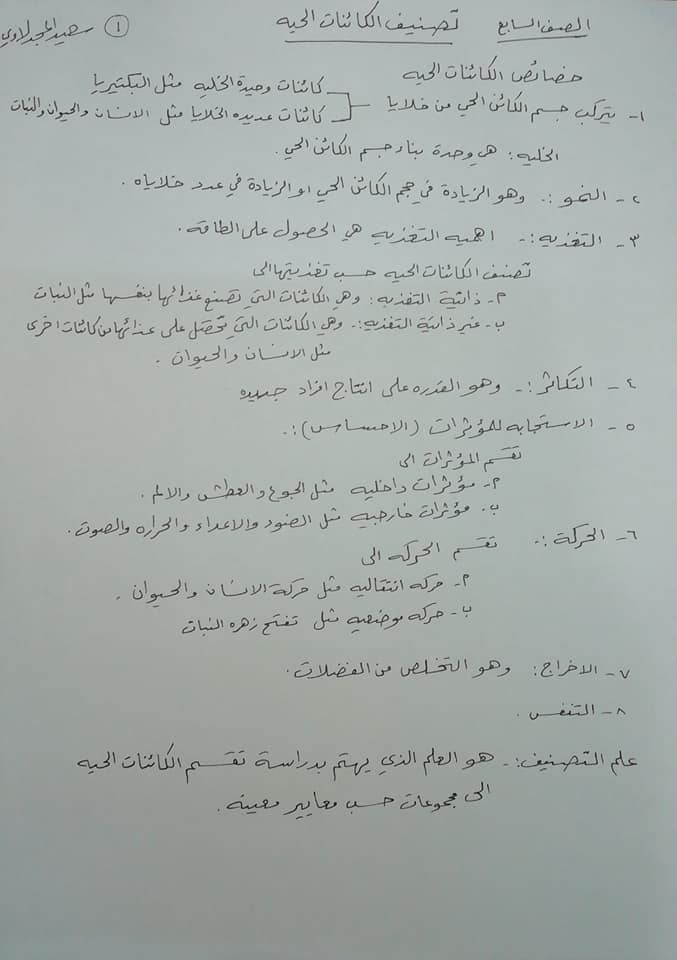 الصف السابع تصنيف الكائنات الحيه ١ المجدلاوي
خصائص الكائنات الحيه
كائنات وحيدة الخليه مثل البكتيريا
١- يتركب جسم الكائن الحي من خلايا
كائنات عديده الخلايا مثل الانسان والحيوان والنبات
الخليه : هي وحدة بناء جسم الكائن الحي .
٢- النمو :. وهو الزيادة في حجم الكائن الحي او الزيادة في عدد خلاياه .
٣- التغذيه :- اهميه التغذيه هي الحصول على الطاقه .
تصنف الكائنات الحيه حسب تغذيتها الى
أ- ذاتية التغذيه : وهي الكائنات التي تصنع غذائها بنفسها مثل النبات
ب- غير ذاتية التغذيه :. وهي الكائنات التي تحصل على غذائها من كائنات اخرى
مثل الانسان والحيوان .
٤- التكاثر :- وهو القدره على انتاج افراد جديده
٥- الاستجابه للمؤثرات (الاحساس) :.
تقسم المؤثرات الى
أ- مؤثرات داخليه مثل الجوع والعطش والالم .
ب- مؤثرات خارجيه مثل الضوء والاعداء والحراره والصوت .
٦- الحركة :- تقسم الحركه الى
أ- حركه انتقاليه مثل حركة الانسان والحيوان .
ب- حركه موضعيه مثل تفتح زهره النبات
٧- الاخراج : وهو التخلص من الفضلات .
٨- التنفس .
علم التصنيف :- هو العلم الذي يهتم بدراسة تقسم الكائنات الحيه
الى مجموعات حسب معايير معينه .